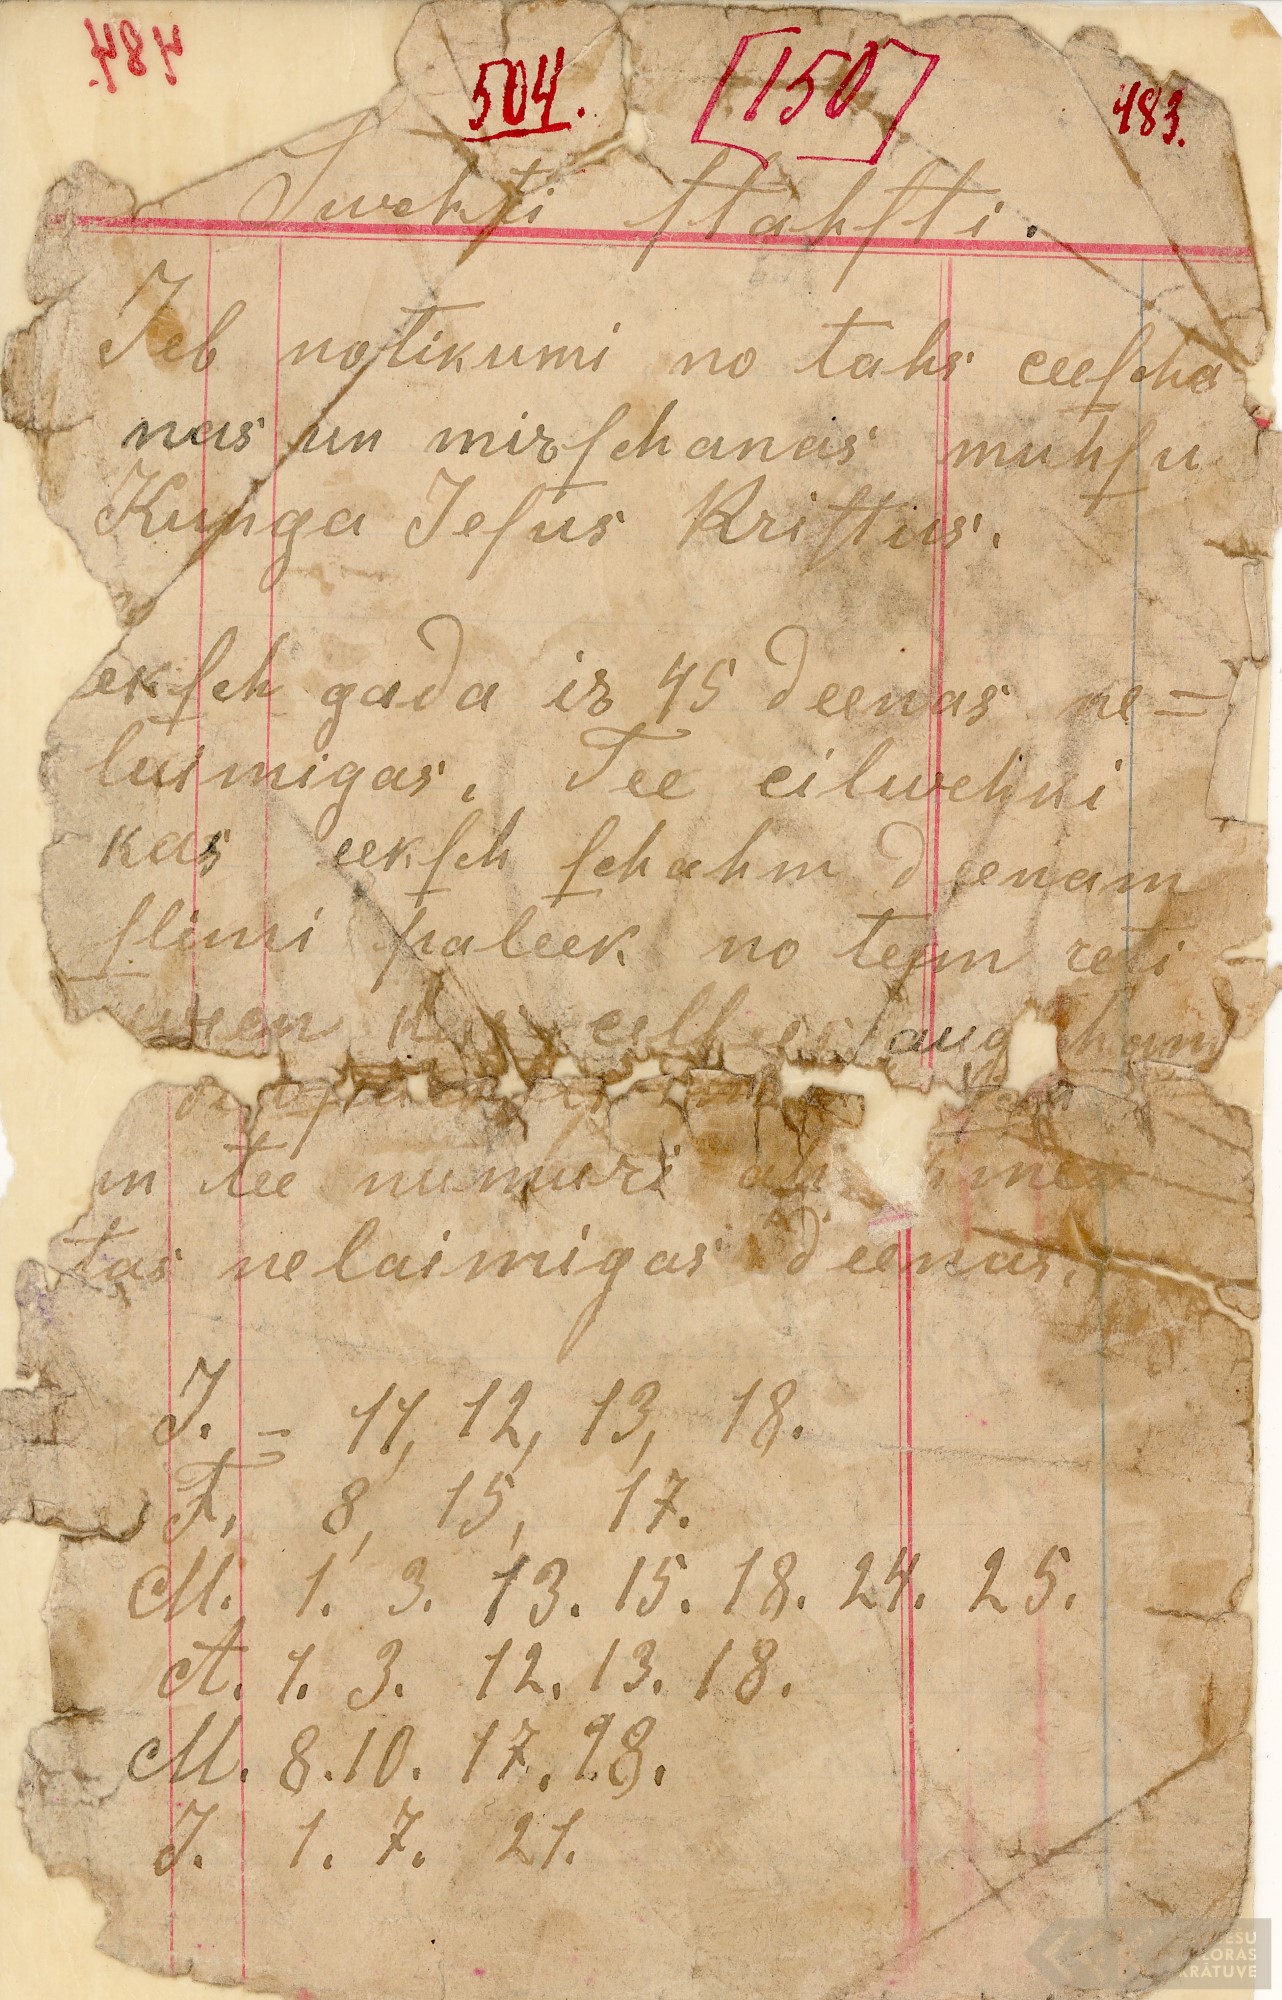 484
504.
150
483.
Swehti stahsti.
Jeb notikumi no tahs ceeſcha
nas un mirſchanas muhſu
Kunga Jeſus Kriſtus.
eekſch gada ir 45 deenas ne=
laimigas. Tee cilwehki
kas eekſch ſchahm deenam
ſlimi paleek no teem reti
aug
un tee numuri
tas nelaimigas deenas.
J. = 11, 12, 13, 18.
F. 8, 15, 17.
M. 1. 3. 13. 15. 18. 24. 25.
A. 1. 3. 12. 13. 18.
M. 8. 10. 17. 28.
J. 1. 7. 21.
ESU
LORAS
KRĀTUVE